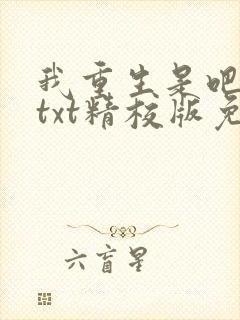 我重生呆吧
txt精校版免
六盲星